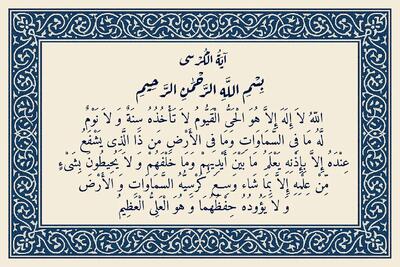 آيَةُ الْكُرْسِى
بِسْمِ اللَّهِ الرَّحْمَٰنِ الرَّحِيمِ
اللَّهُ لاَ إِلَهَ إِلاَّ هُوَ الْحَىُّ الْقَيُّومُ لاَ تَأْخُذُهُ سِنَةٌ وَ لاَ نَوْمٌ
لَهُ مَا فِى السَّمَاوَاتِ وَمَا فِى الأَرْضِ مَن ذَا الَّذِى يَشْفَعُ
عِنْدَهُ إِلاَّ بِإِذْنِهِ يَعْلَمُ مَا بَيْنَ أَيْدِيهِمْ وَمَا خَلْفَهُمْ وَ لاَ يُحِيطُونَ بِشَىْءٍ
مِنْ عِلْمِهِ إِلاَّ بِمَا شَاءَ وَسِعَ كُرْسِيُّهُ السَّمَاوَاتِ وَ الأَرْضَ
وَ لاَ يَؤُودُهُ حِفْظُهُمَا وَ هُوَ الْعَلِىُّ الْعَظِيمُ